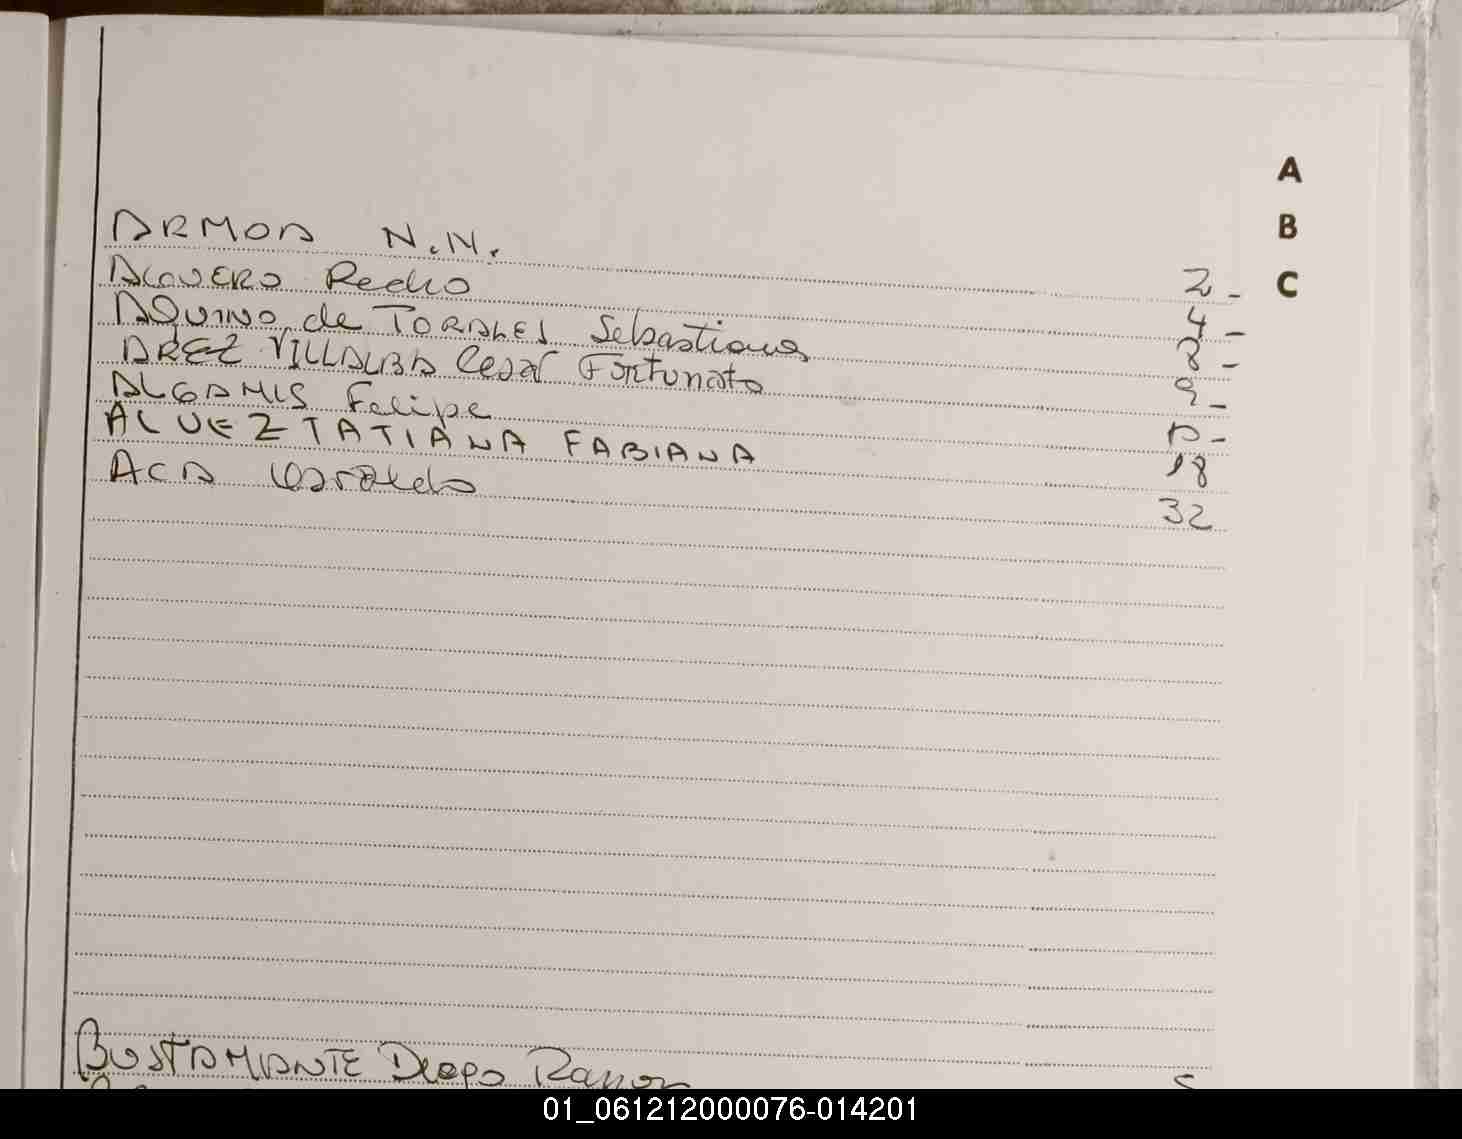 A
B
C
ARMOA N.N. 2-
ALCVERO Pedro 4-
AQUINO de TORALES Sebastiana 8-
AREZ VILLALBA Cesar Fortunato 9-
ALGAMIS Felipe 10-
ALVEZ TATIANA FABIANA 18
ACA 32
BUSTAMANTE Diego Ramon
01_061212000076-014201